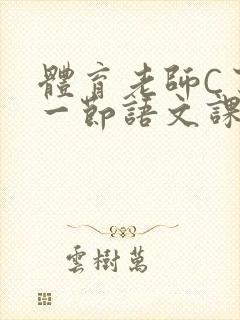 體育老師C
一節語文課
雲樹萬